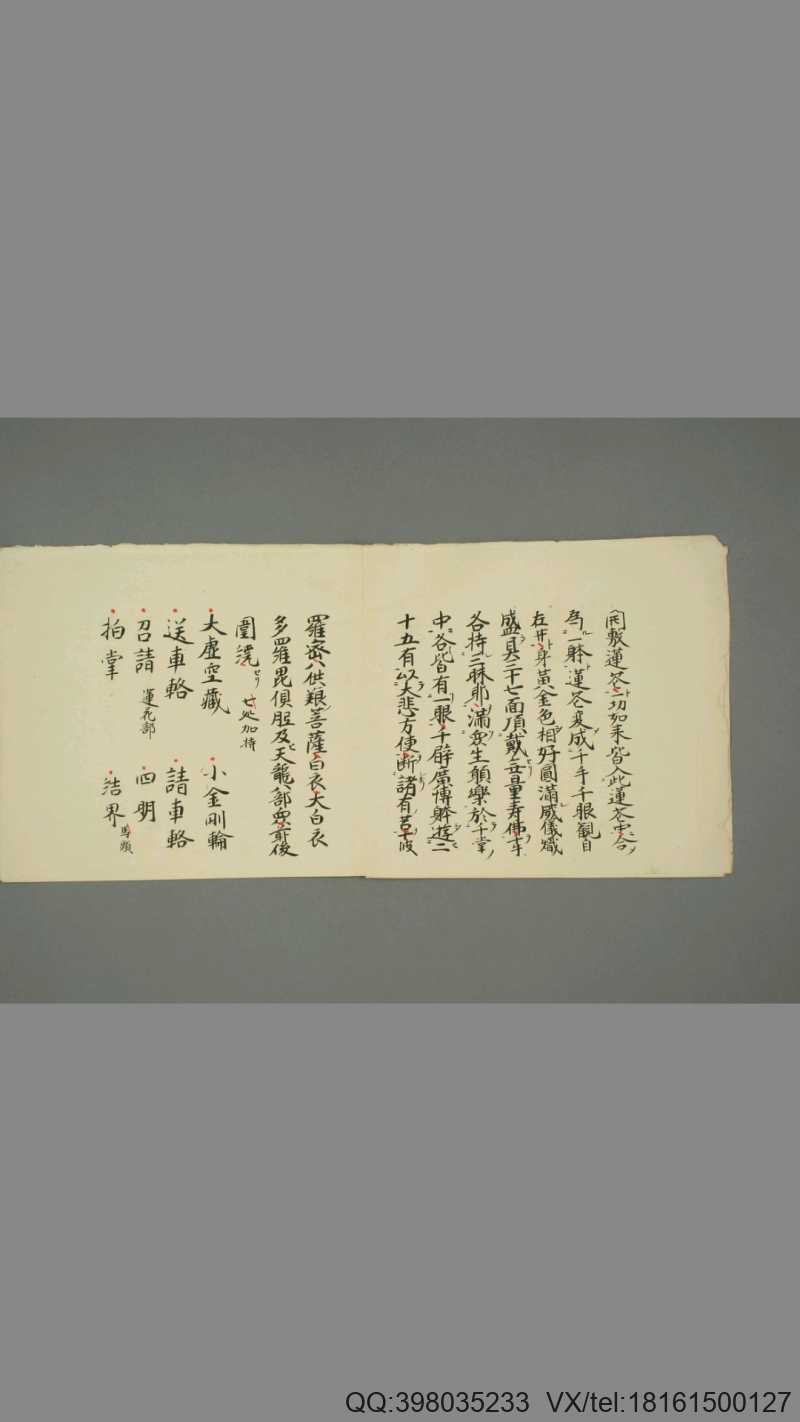 開敷蓮花一切如来皆入此蓮花中合
為一躰蓮花変成千手千眼観自
在卄身黄金色相好圓満威儀熾
盛具二十七面頂戴無量寿佛千手
各持三昧耶満衆生願樂於千掌
中各皆有一眼千臂廣博躰遊二
十五有以大悲方便断諸有苦十波
羅蜜八供養菩薩白衣大白衣
多羅毘倶胝及天龍八部衆前後
圍遶 七処加持
大虚空蔵 小金剛輪
送車輅 請車輅
召請 蓮花部 四明
拍掌 結界 馬頭
QQ:398035233 VX/tel:18161500127